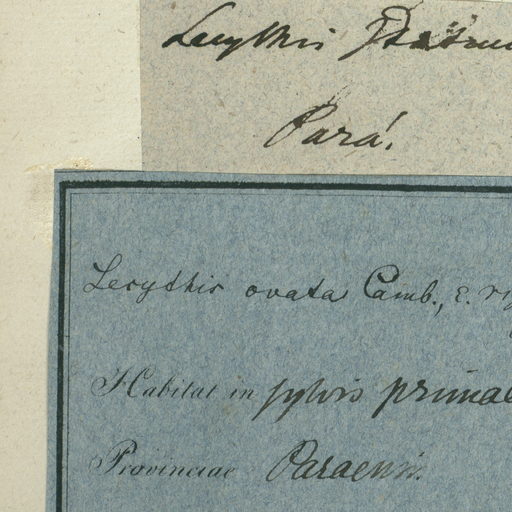 Lecythis
Pará!
Lecythis ovata Camb., E.
Habitat in sylvis primae
Provinciae Paraensi.